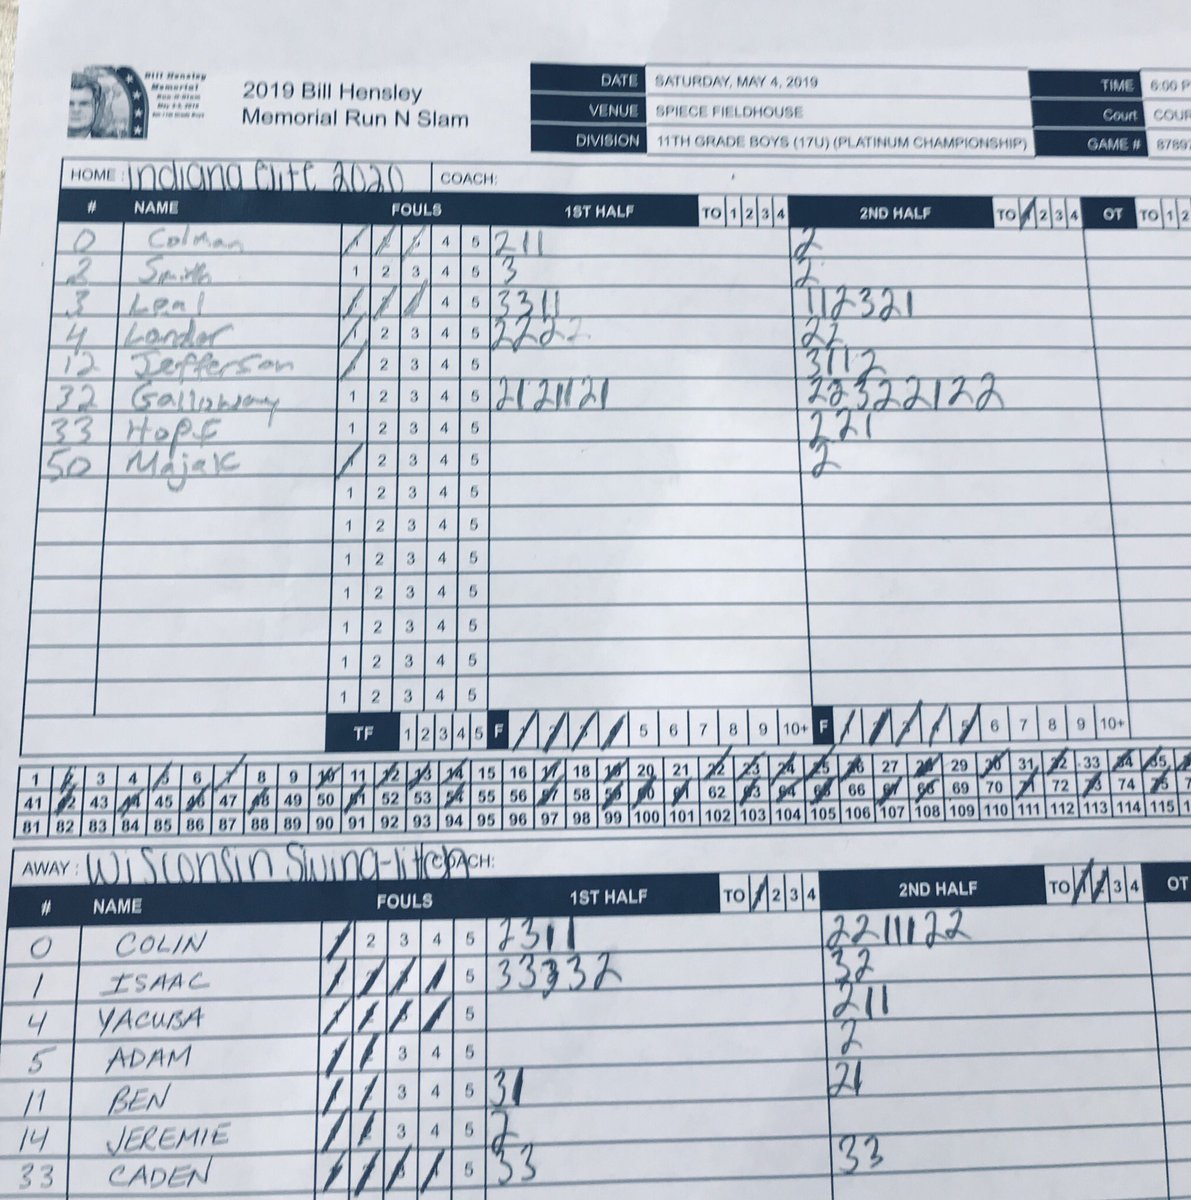 Bill Hensley
Memorial
Run-N-Slam
2019 Bill Hensley
Memorial Run N Slam
DATE SATURDAY, MAY 4, 2019 TIME 6:00 P
VENUE SPIECE FIELDHOUSE Court COUR
DIVISION 11TH GRADE BOYS (17U) (PLATINUM CHAMPIONSHIP) GAME # 8789
HOME: Indiana Elite 2020 COACH:
# NAME FOULS 1ST HALF TO 1 2 3 4 2ND HALF TO 1 2 3 4 OT TO 1 2
0 Colman 1 2 3 4 5 211 2
2 Smith 1 2 3 4 5 3 2
3 Leal 1 2 3 4 5 3311 112321
4 Lander 1 2 3 4 5 2222 22
12 Jefferson 1 2 3 4 5 3112
32 Galloway 1 2 3 4 5 21211121 22322122
33 Hopf 1 2 3 4 5 221
50 Majak 1 2 3 4 5 2
1 2 3 4 5
1 2 3 4 5
1 2 3 4 5
1 2 3 4 5
1 2 3 4 5
1 2 3 4 5
1 2 3 4 5
TF 1 2 3 4 5 F 1 2 3 4 5 6 7 8 9 10+ F 1 2 3 4 5 6 7 8 9 10+
1 2 3 4 5 6 7 8 9 10 11 12 13 14 15 16 17 18 19 20 21 22 23 24 25 26 27 28 29 30 31 32 33 34 35
41 42 43 44 45 46 47 48 49 50 51 52 53 54 55 56 57 58 59 60 61 62 63 64 65 66 67 68 69 70 71 72 73 74 75
81 82 83 84 85 86 87 88 89 90 91 92 93 94 95 96 97 98 99 100 101 102 103 104 105 106 107 108 109 110 111 112 113 114 115
AWAY: Wisconsin Swing COACH:
# NAME FOULS 1ST HALF TO 1 2 3 4 2ND HALF TO 1 2 3 4 OT
0 COLIN 1 2 3 4 5 2311 2211122
1 ISAAC 1 2 3 4 5 33332 32
4 YACUBA 1 2 3 4 5 211
5 ADAM 1 2 3 4 5 2
11 BEN 1 2 3 4 5 31 21
14 JEREMIE 1 2 3 4 5 2
33 CADEN 1 2 3 4 5 33 33